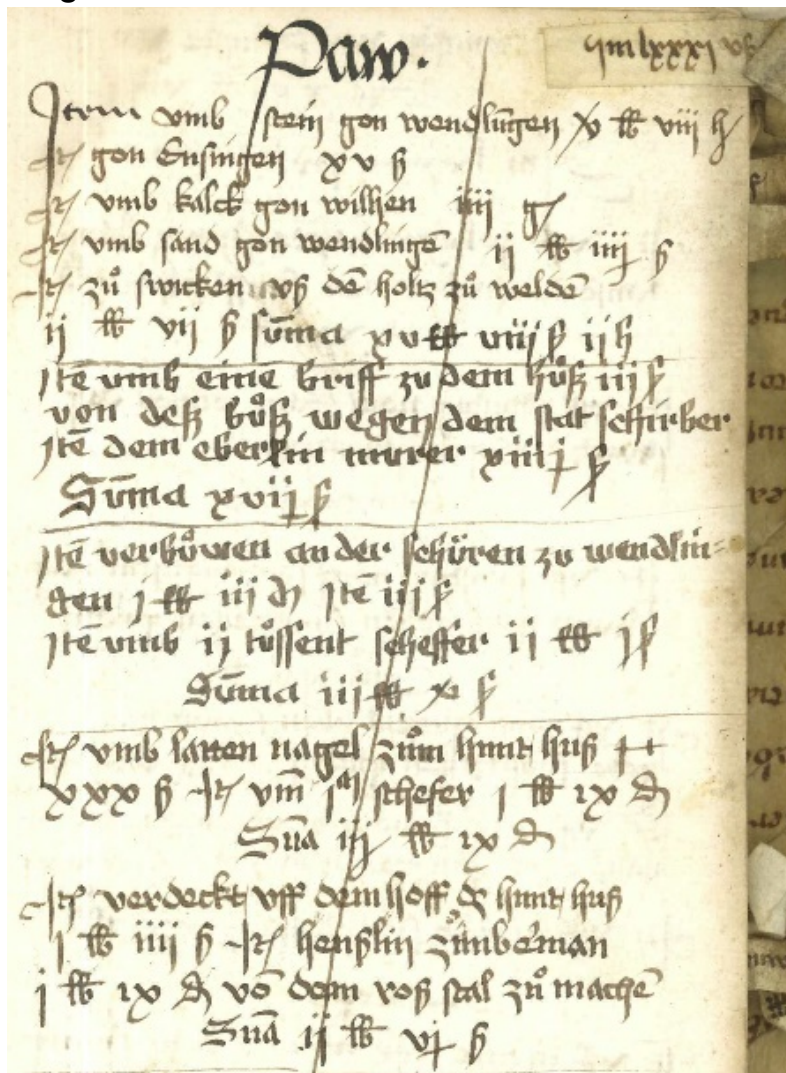 Paw.
Item vmb stein gon wendlingen x lb viii h
It gon Ensingen xv ß
It vmb kalck gon wilhen iiii g
It vmb sand gon wendlingē ii lb iiij ß
It zů swicken vß dē holtz zů weldē
ij lb vij ß sūma xv lb viiij ß ij h
Itē vmb eine briff zu dem hůß iij ß
von deß bůß wegen dem stat schriber
Itē dem eberlin murer xiiij ß
Sūma xvij ß
Itē verbůwen an der schüren zu wendlin=
gen j lb iij d Itē iij ß
Itē vmb ij tůssent scheffer ij lb j ß
Sūma iij lb x ß
It vmb latten nagel zům hunt huß
xxx ß It vm̄ schefer j lb ix d
Sūa iij lb ix d
It verdeckt vff dem hoff hunt huß
j lb iiii ß It henßlin zimberman
j lb ix d vō dem roß stal zů machē
Sūā ij lb vj ß